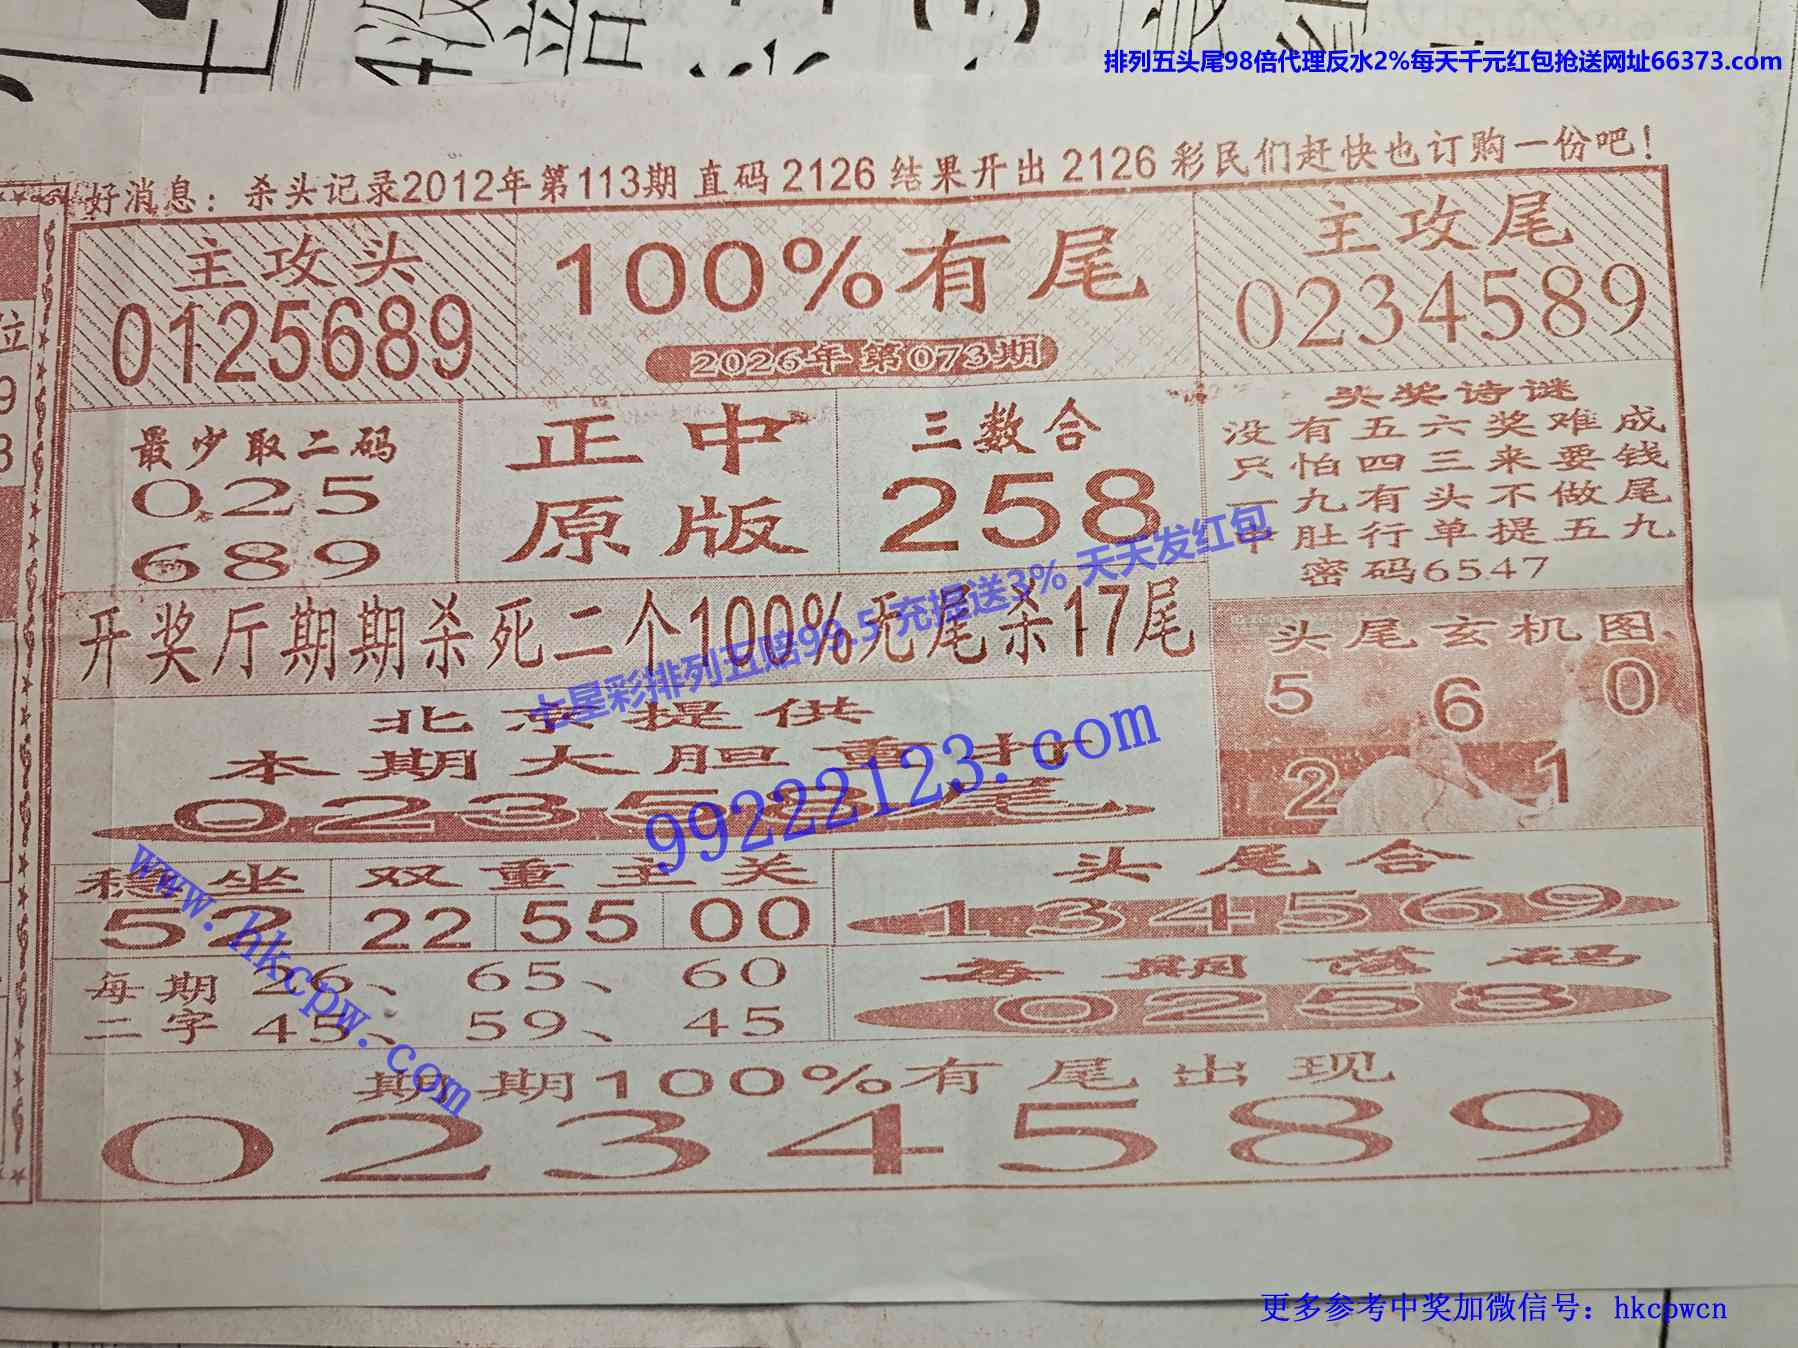 排列五头尾98倍代理反水2%每天千元红包抢送网址66373.com
好消息：杀头记录2012年第113期 直码 2126 结果开出 2126 彩民们赶快也订购一份吧！
主攻头
0125689
100%有尾
2026年第073期
主攻尾
0234589
最少取二码
025
689
正中
原版
三数合
258
头奖诗谜
没有五六奖难成
只怕四三来要钱
一九有头不做尾
中肚行单提五九
密码6547
开奖厅期期杀死二个100%无尾杀17尾
七星彩排列五赔99.5 充提送3% 天天发红包
头尾玄机图
5 6 0
2 1
北京提供
本期大胆重打
02358尾
99222123.com
www.hkcpw.com
稳坐
52
双重主关
22 55 00
头尾合
134569
每期
二字
26、 65、 60
45、 59、 45
每期落码
0258
期期100%有尾出现
0234589
更多参考中奖加微信号：hkcpwcn